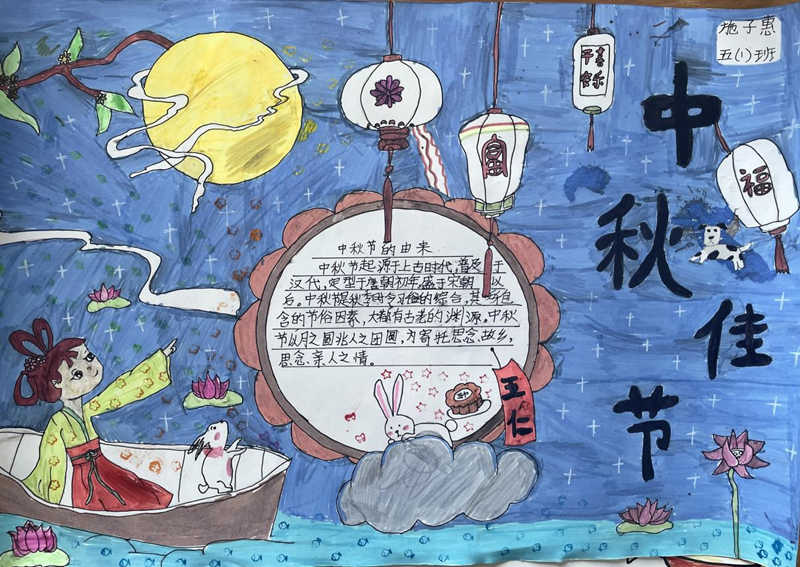 施子惠
五(1)班
中秋佳节
喜乐
平安
富
福
中秋节的由来
中秋节起源于上古时代,普及于
汉代,定型于唐朝初年,盛于宋朝以
后。中秋节是秋季时令习俗的综合,其所包
含的节俗因素,大都有古老的渊源。中秋
节以月之圆兆人之团圆,为寄托思念、故乡,
思念、亲人之情。
五仁